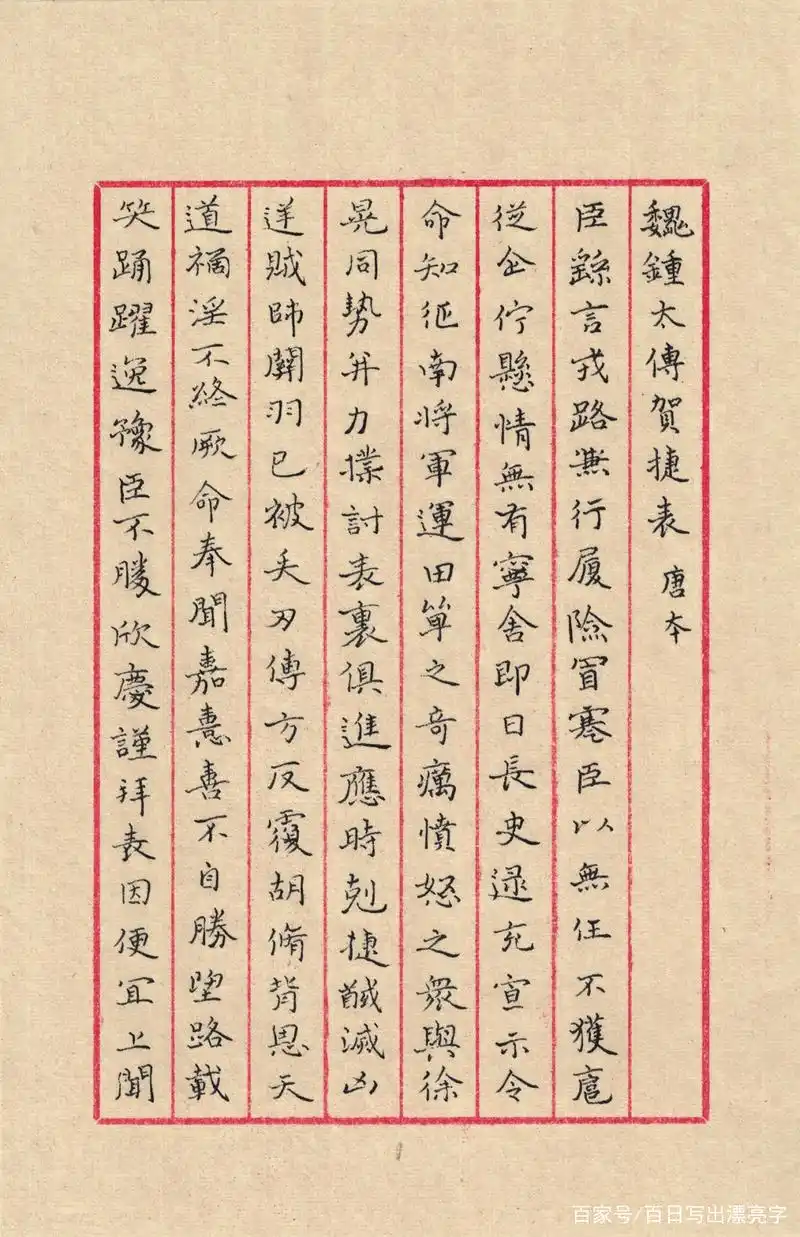 魏鍾太傅賀捷表 唐本
臣繇言戎路兼行履險冒寒臣以無任不獲扈
從企佇懸情無有寧舍即日長史逯充宣示令
命知征南將軍運田單之奇厲憤怒之眾與徐
晃同勢并力撲討表裏俱進應時剋捷馘滅凶
逆賊帥關羽已被矢刃傅方反覆胡脩背恩天
道禍淫不終厥命奉聞嘉憙喜不自勝望路載
笑踊躍逸豫臣不勝欣慶謹拜表因便宜上聞
百家号/百日写出漂亮字